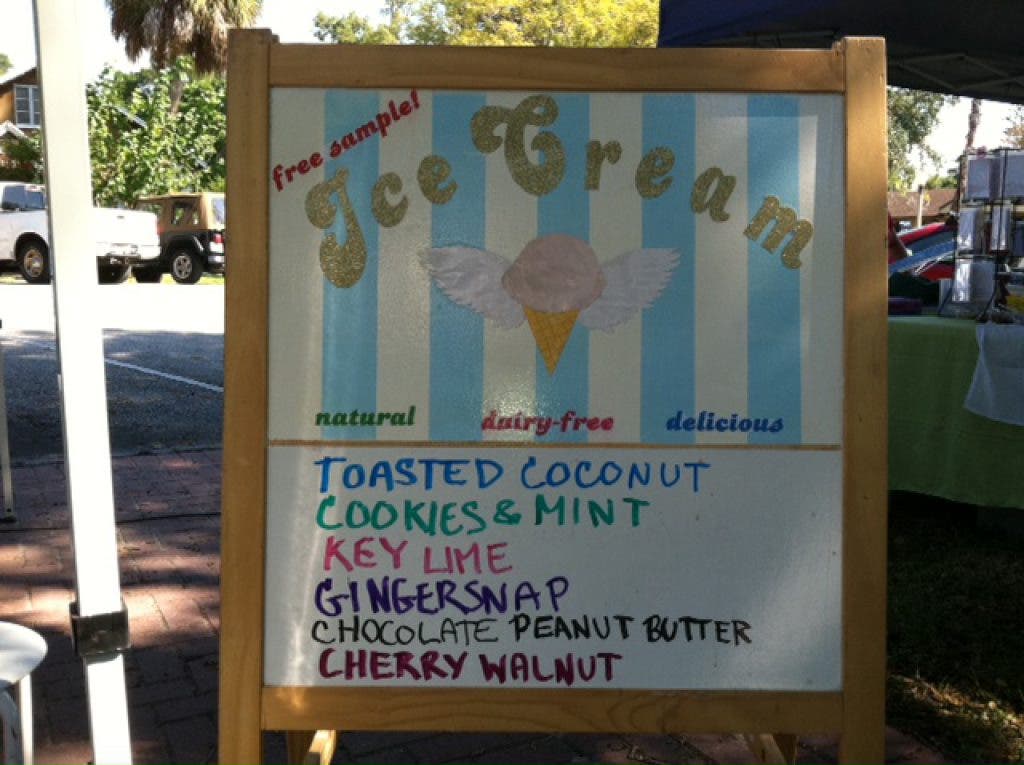 free sample!
Ice Cream
natural dairy-free delicious
TOASTED COCONUT
COOKIES & MINT
KEY LIME
GINGERSNAP
CHOCOLATE PEANUT BUTTER
CHERRY WALNUT